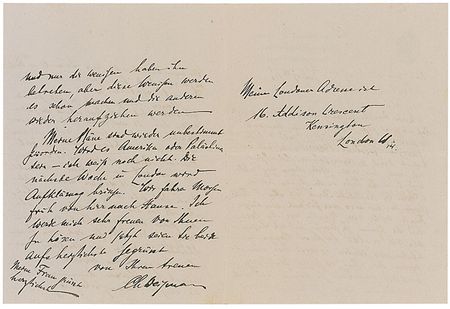 und nur die wenigen haben ihn
betreten, aber diese wenigen werden
es schon machen und die anderen
wieder heraufziehen werden
Meine Pläne sind wieder unbestimmt
geworden. Wird es Amerika oder Palästina
sein – ich weiß noch nicht. Die
nächste Woche in London wird
Aufklärung bringen. Wir fahren Morgen
früh von hier nach Hause. Ich
werde mich sehr freuen von Ihnen
zu hören und jetzt seien Sie beide
aufs herzlichste gegrüsst
von Ihrem treuen
Ch Weizmann
Meine Frau grüsst
herzlichst
Meine Londoner Adresse ist
16. Addison Crescent
Kensington
London W. 14.